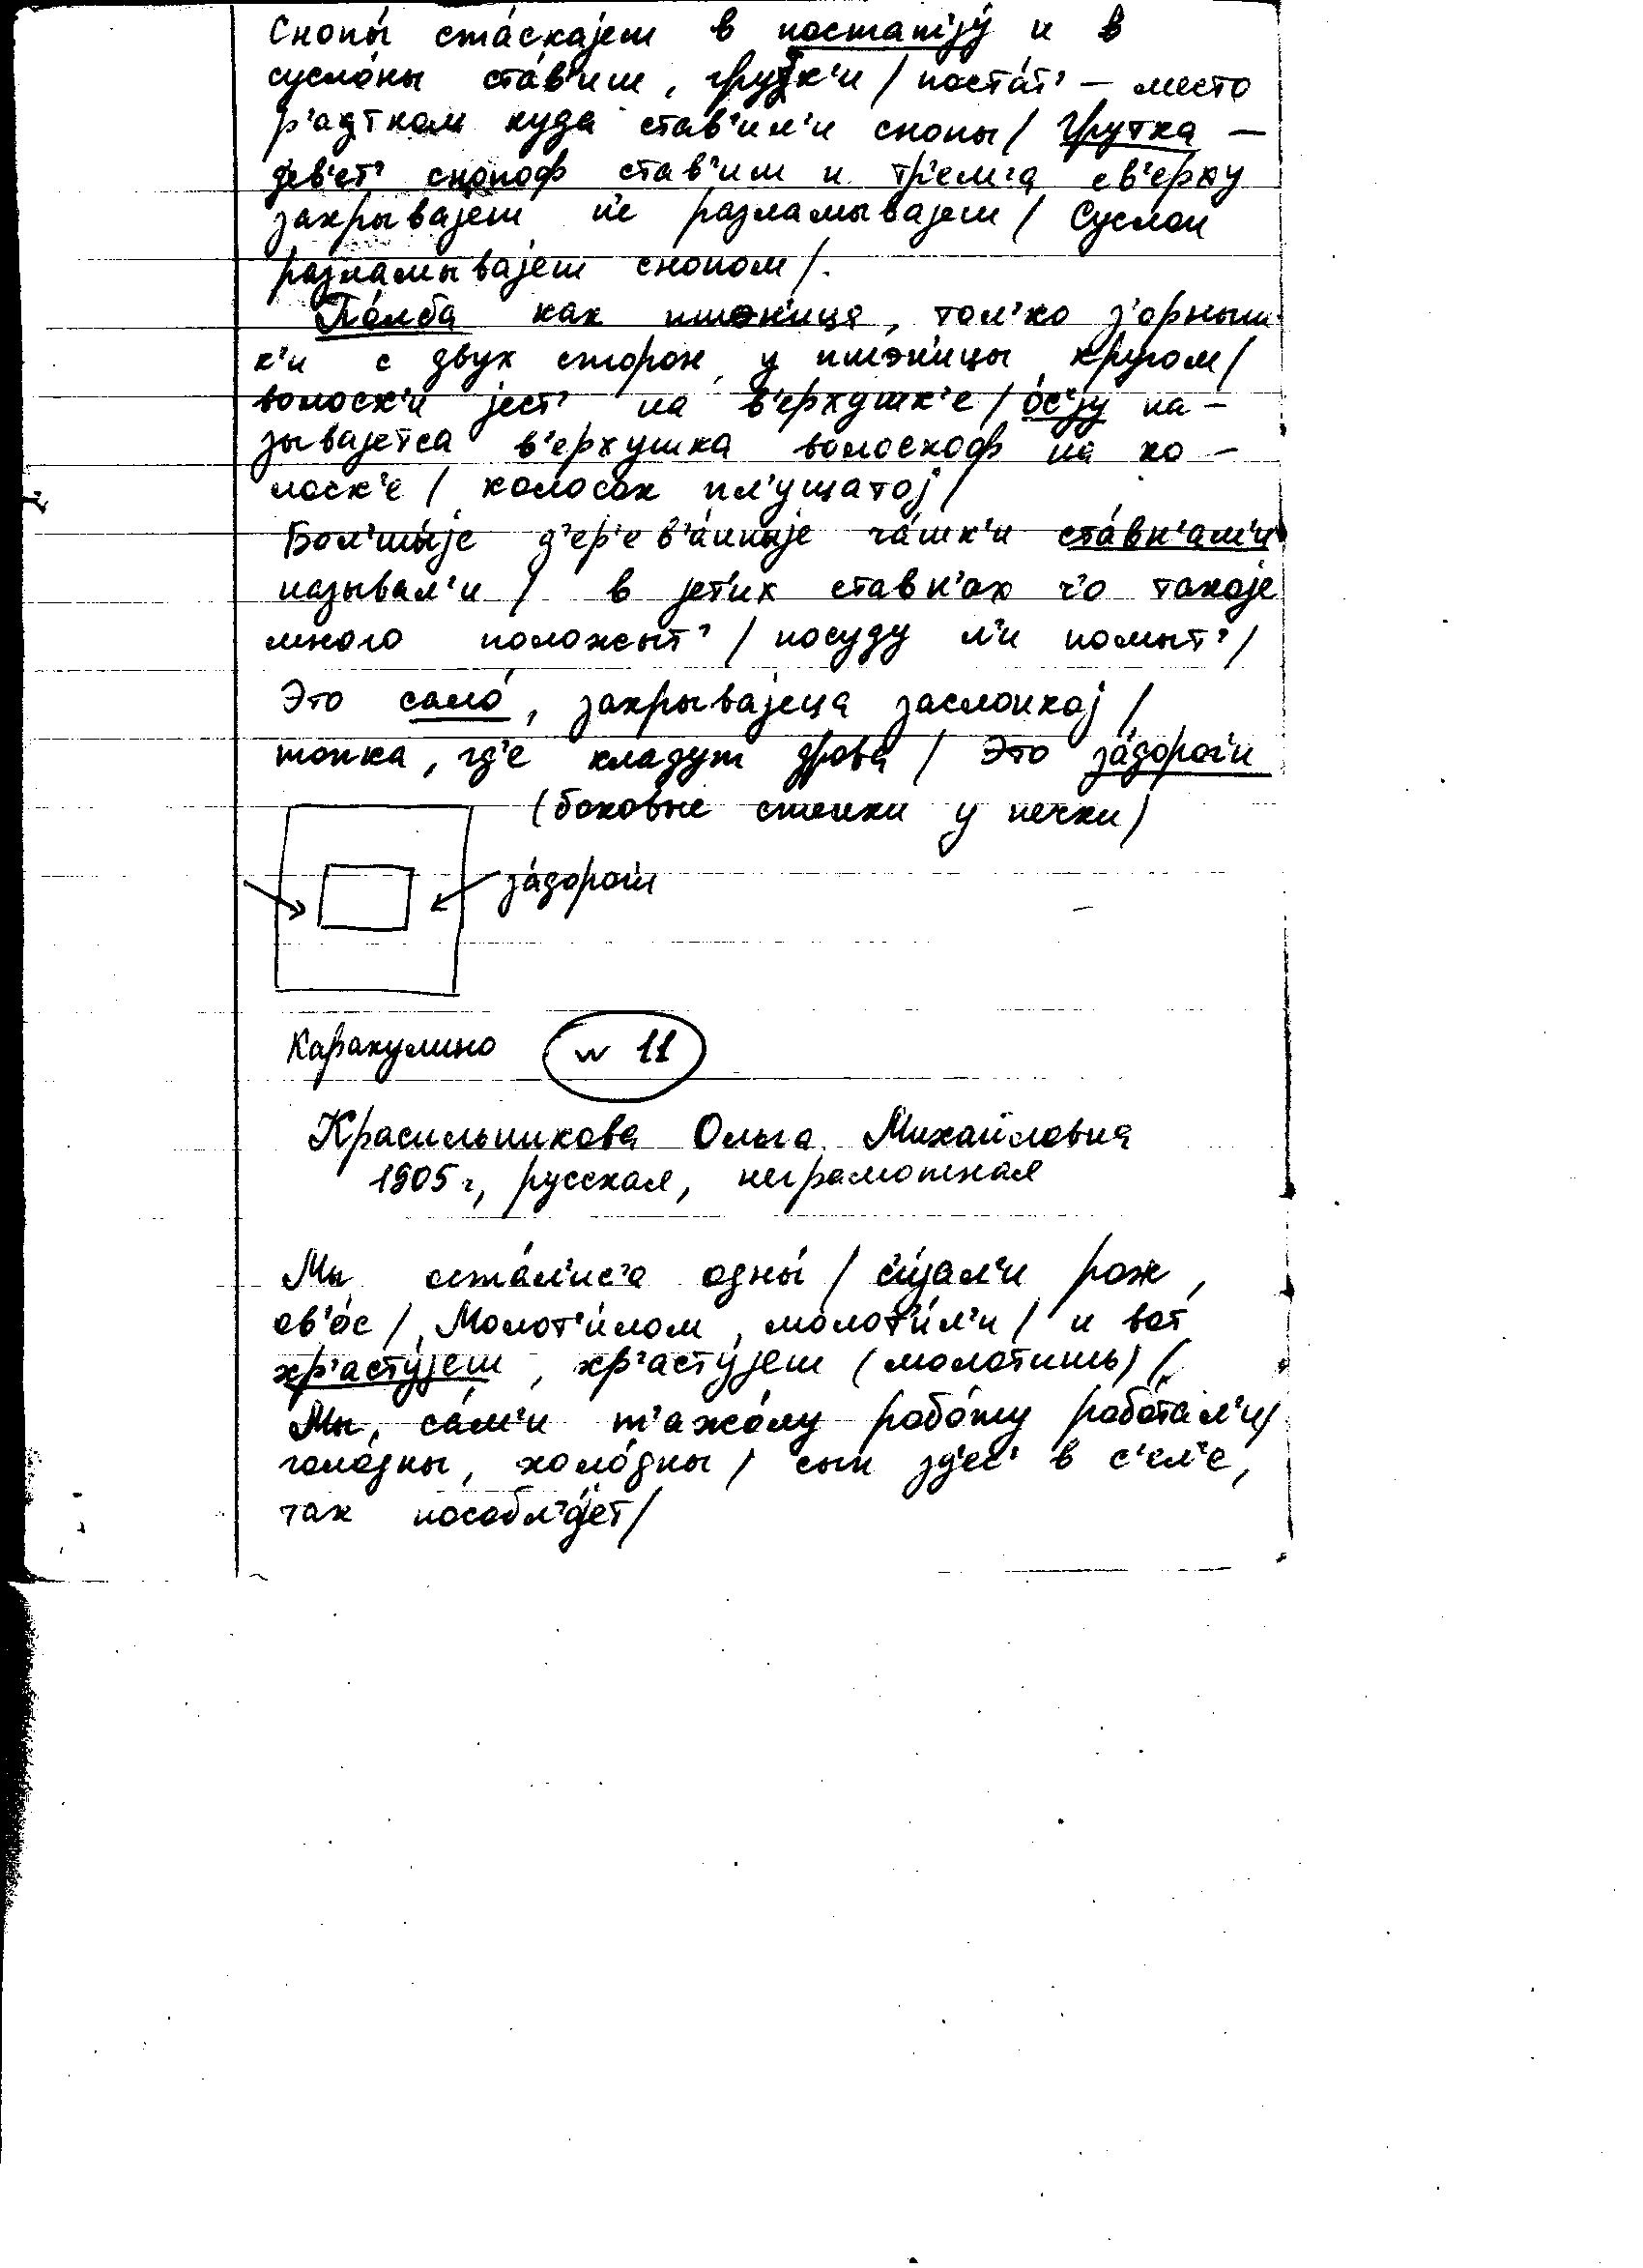 Снопы́ ста́скајеш в постат'jу́ и в
сусло́ны ста́в'иш, грутк'и / поста́т' – место
р'адком куда став'ил'и снопы / Грутка –
дев'ет' снопоф став'иш и тр'ем'а св'ерху
закрывајеш и разламывајеш / Суслон
разламывајеш снопом /.
По́лба как пшэн'ица, тол'ко з'орныш
к'и с двух сторон, у пшэн'ицы кругом /
волоск'и јест' на в'ерхушк'е / о́с'jу на –
зывајетса в'ерхушка волоскоф на ко –
лоск'е / колосок пл'ущатој /
Бол'шы́је д'ер'ев'а́нныје ча́шк'и ста́вн'ам'и
называл'и / в јет'их ставн'ах ч'о такоје
много положыт' / посуду л'и помыт' /
Это сало́, закрывајеца заслонкој /
топка, гд'е кладут дрова / Это за́дорог'и
(боковые стенки у печки)
за́дорог'и
Каракулино
№ 11
Красильникова Ольга Михайловна
1905 г, русская, неграмотная
Мы оста́л'ис'а одны́ / с'и́јал'и рож,
ов'о́с / Молот'и́лом, молот'и́л'и / и вот
хр'асту́јеш, хр'асту́јеш (молотишь) /
Мы, са́м'и т'ажо́лу робо́ту робо́тал'и /
голо́дны, холо́дны / сын зд'ес' в с'ел'е,
так пособл'а́јет /